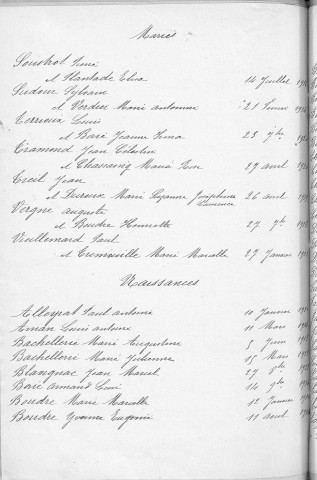 Mariés
Soustrot René
et Plantade Elisa 14 Juillet
Sudour Sylvain
et Verdier Marie antoinette 21
Terrieux Louis
et Baré Jeanne 23 7bre
Tramond Jean Célestin
et Chassaing Marie 29 avril
Treil Jean
et Duroux Marie Suzanne Joséphine 26 avril
Vergne auguste
et Boudre Henriette 27 9bre
Vuillemard Paul
et Tremouille Marie Marcelle 27 Janvier
Naissances
Alleyrat Paul antoine 10 Janvier
Aman Louis antoine 11 Mars
Bachellerie Marie Augustine 5 Juin
Bachellerie Marie 15 Mars
Blangnac Jean Marcel 27 8bre
Baré armand Louis 14 9bre
Boudre Marie Marcelle 12 Janvier
Boudre Yvonne Eugénie 11 avril